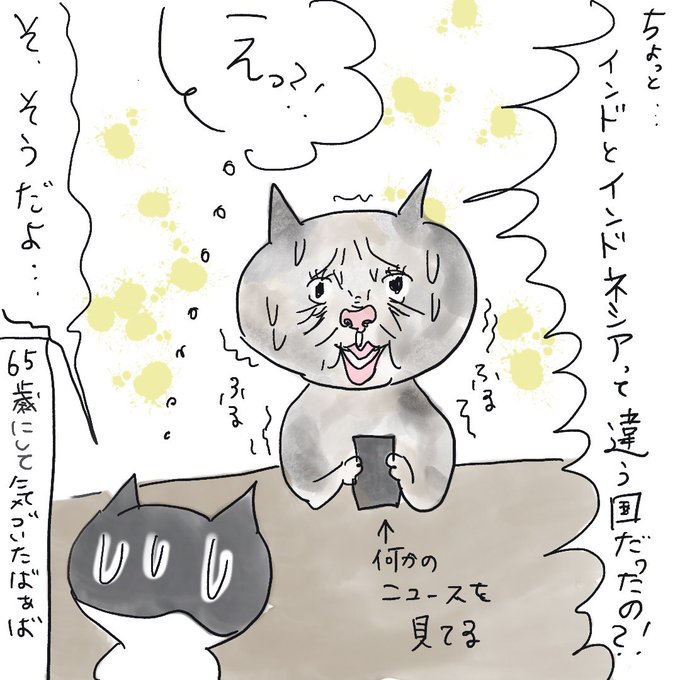 ちょっと…
インドとインドネシアって違う国だったの?!
えっ?!
ふる
ふる
そ、そうだよ…
何かの
ニュースを
見てる
65歳にして気づいたばぁば